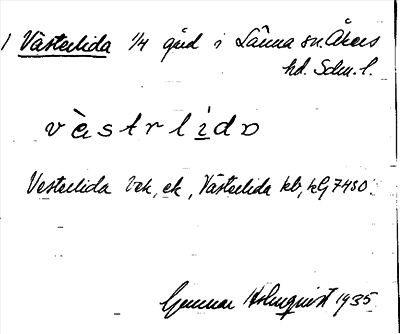 1 Västerlida 1/4 gård i Länna sn. Åkers
hd. Sdm. l.
vàstrlido
Vesterlida ek, Västerlida kb, kG 7480.
Gunnar Holmquist 1935